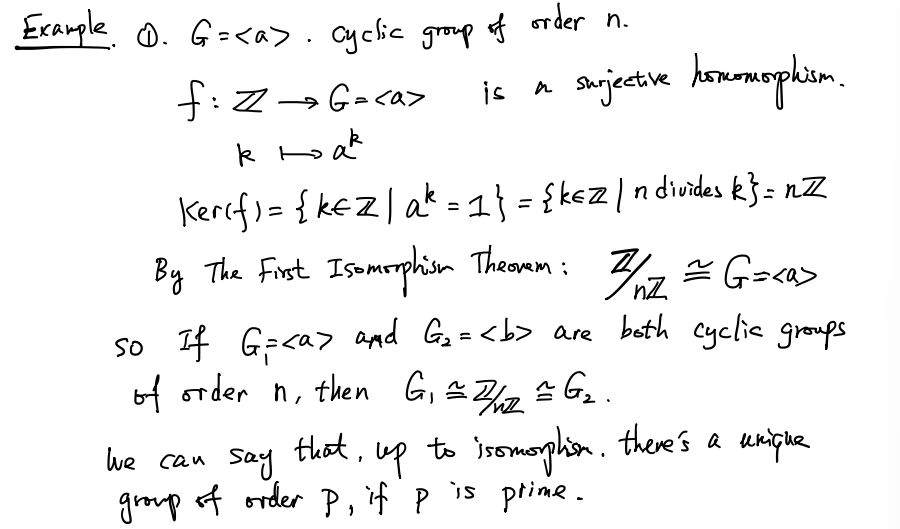 Example. ①. G = <a>. cyclic group of order n.
f : ℤ ⟶ G = <a> is a surjective homomorphism.
k ⟼ a^k
Ker(f) = { k ∈ ℤ | a^k = 1 } = { k ∈ ℤ | n divides k } = nℤ
By The First Isomorphism Theorem : ℤ/nℤ ≅ G = <a>
so If G₁ = <a> and G₂ = <b> are both cyclic groups
of order n, then G₁ ≅ ℤ/nℤ ≅ G₂.
We can say that, up to isomorphism, there's a unique
group of order p, if p is prime.